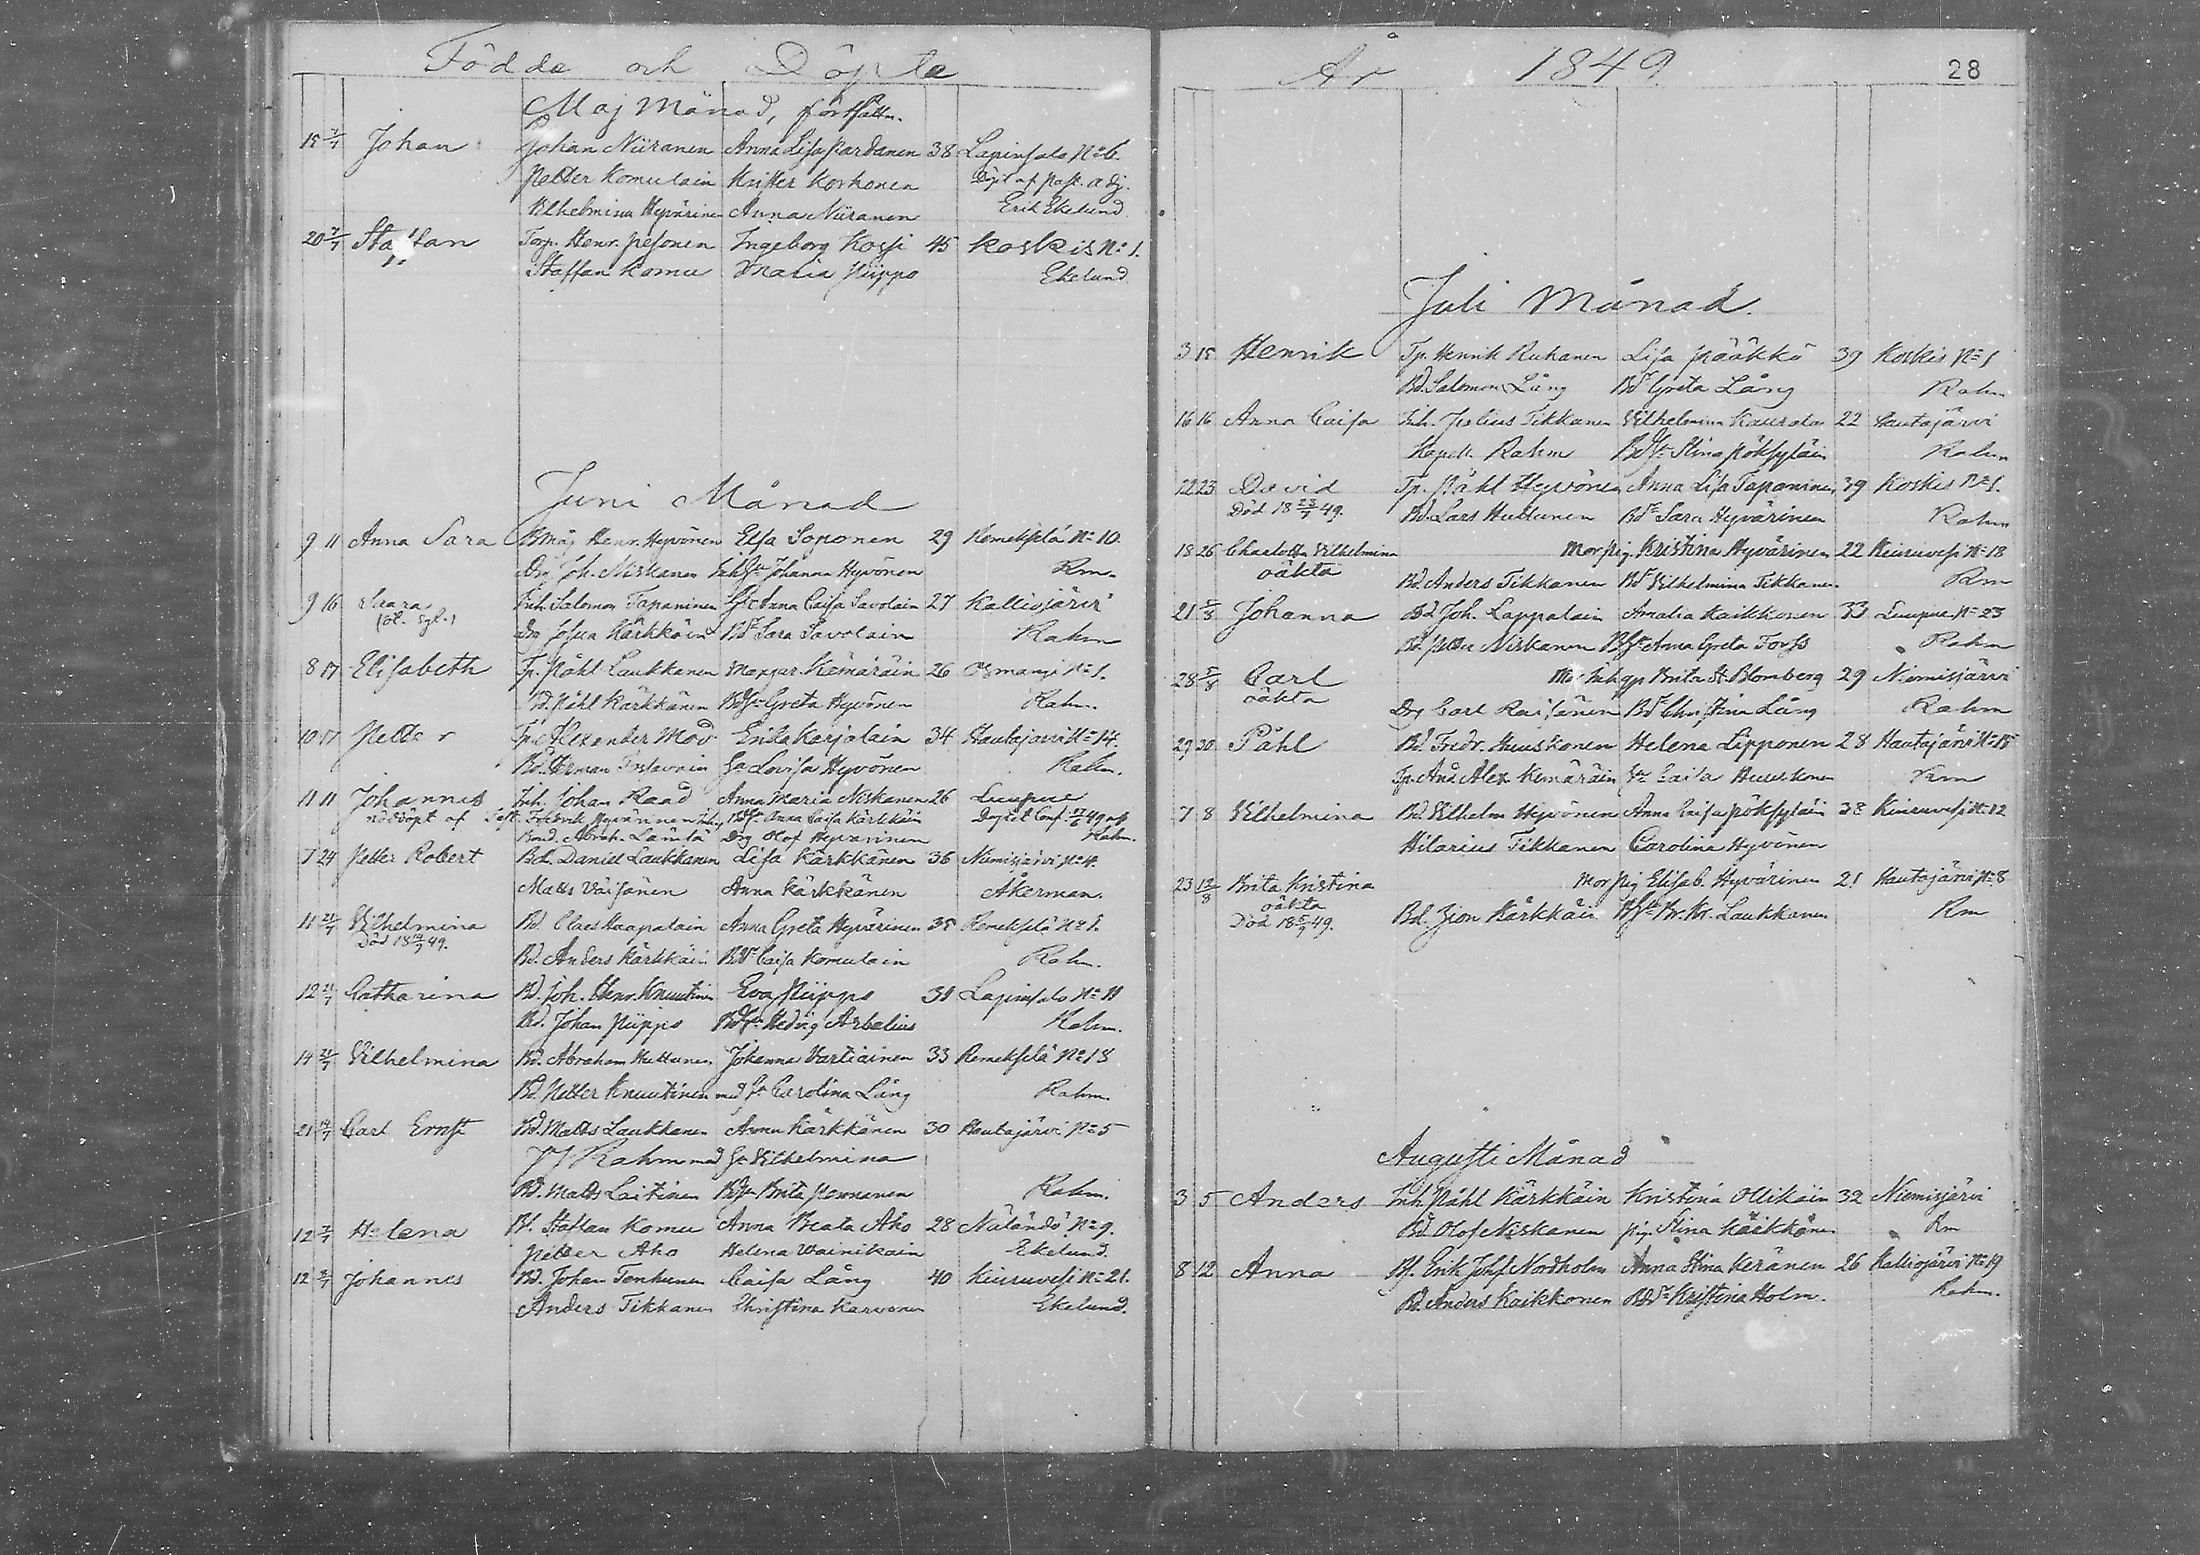 Födda och Döpta
Maj Månad, fortsättn.
15 7/7 Johan Johan Niiranen Anna Lisa Pardanen 38 Lapinsalo No 6.
Petter Komulain Krister Korhonen Döpt af Past. adj.
Vilhelmina Hyvärinen Anna Niiranen Erik Ekelund
20 7/7 Staffan Torp. Henr. Pesonen Ingeborg Kossi 45 Koskis No 1.
Staffan Komu Maria Piippo Ekelund
Juni Månad
9 11 Anna Sara Henr. Hyvönen Elsa Soponen 29 Remeksilä No 10.
Drg Joh. Niskanen Johanna Hyvönen Rm.
9 16 Saara Inh. Salomon Tapaninen Anna Caisa Savolain 27 Kalliojärvi
Drg Josua Kärkkäin Bds Sara Savolain Rahm
8 17 Elisabeth Tp. Påhl Laukkanen Margar. Kemäräin 26 Osmangi No 1.
Bd. Påhl Kärkkänen Greta Hyvönen Rahm.
10 17 Petter Tp. Alexander Mod Erika Karjalain 34 Hautajärvi No 14.
Bd. Herman Lovisa Hyvönen Rahm.
11 11 Johannes Inh. Johan Raad Anna Maria Niskanen 26 Luupue
nöddöpt af Fredrik Hyvärinen Anna Caisa Kärkkäin Döpt Conf. 17/6 49 af
Bond. Abrah. Drg Olof Hyvärinen Rahm.
7 24 Petter Robert Bd. Daniel Laukkanen Lisa Kärkkänen 36 Niemisjärvi No 4.
Matts Väisänen Anna Kärkkänen Åkerman.
11 21/7 Vilhelmina Bd. Claes Haapalain Anna Greta Hyvärinen 35 Remeksilä No 1.
Död 49. Bd. Anders Kärkkäin Caisa Komulain Rahm.
12 21/7 Catharina Bd. Joh. Henr. Knuutinen Eva Piippo 31 Lapinsalo No 11
Bd. Johan Piippo Hedvig Arbelius Rahm.
14 21/7 Vilhelmina Bd. Abraham Huttunen Johanna Vartiainen 33 Remeksilä No 13
Bd. Petter Knuutinen med Carolina Lång Rahm.
21 Carl Ernst Bd. Matts Laukkanen Anna Kärkkänen 30 Hautajärvi No 5
Rahm med Vilhelmina
Bd. Matts Laitinen Brita Pennanen Rahm.
12 7/7 Helena Staffan Komu Anna Beata Aho 28 Näländö No 9.
Petter Aho Helena Wainikain Ekelund.
12 Johannes Bd. Johan Tenhunen Caisa Lång 40 Kiuruvesi No 21.
Anders Tikkanen Christina Karvonen Ekelund.
År 1849 28
Juli Månad.
3 15 Henrik Tp. Henrik Ruhanen Lisa Pääkkö 39 Koskis No 1
Bd. Salomon Lång Greta Lång Rahm
16 16 Anna Caisa Inh. Julius Tikkanen Vilhelmina Kaurala 22 Hautajärvi
Kapell. Rahm Stina Pöksyläin Rahm
12 23 David Tp. Påhl Hyvönen Anna Lisa Tapaninen 39 Koskis No 1.
Död 18 23/7 49. Bd. Lars Huttunen Sara Hyvärinen Rahm
18 26 Charlotta Vilhelmina Mor Pig. Kristina Hyvärinen 22 Kiuruvesi No 18
oäkta Bd. Anders Tikkanen Vilhelmina Tikkanen Rm
21 5/8 Johanna Bd. Joh. Lappalain Amalia Kaikkonen 33 Luupue No 23
Bd. Petter Niskanen Anna Greta Forss Rahm
28 5/8 Carl Mor Brita St. Blomberg 29 Niemisjärvi
oäkta Drg Carl Räisänen Christina Lång Rahm
29 30 Påhl Bd. Fredr. Huuskonen Helena Lipponen 28 Hautajärvi No 15
Tp. And. Alex Kemäräin Caisa Huuskonen Rm
7 8 Vilhelmina Bd. Vilhelm Hyvönen Anna Caisa Pöksyläin 38 Kiuruvesi No 12
Hilarius Tikkanen Carolina Hyvönen
23 12/8 Brita Kristina Mor Pig Elisab. Hyvärinen 21 Hautajärvi No 8
oäkta
Död 18 49. Bd. Zion Kärkkäin Br. Kr. Laukkanen Rm
Augusti Månad
3 5 Anders Inh. Påhl Kärkkäin Kristina Ollikain 32 Niemisjärvi
Bd. Olof Niskanen pig. Stina Kaikkonen Rm
8 12 Anna Erik Johs Nordholm Anna Stina Keränen 26 Kalliojärvi No 19
Bd. Anders Kaikkonen Kristina Holm. Rahm.